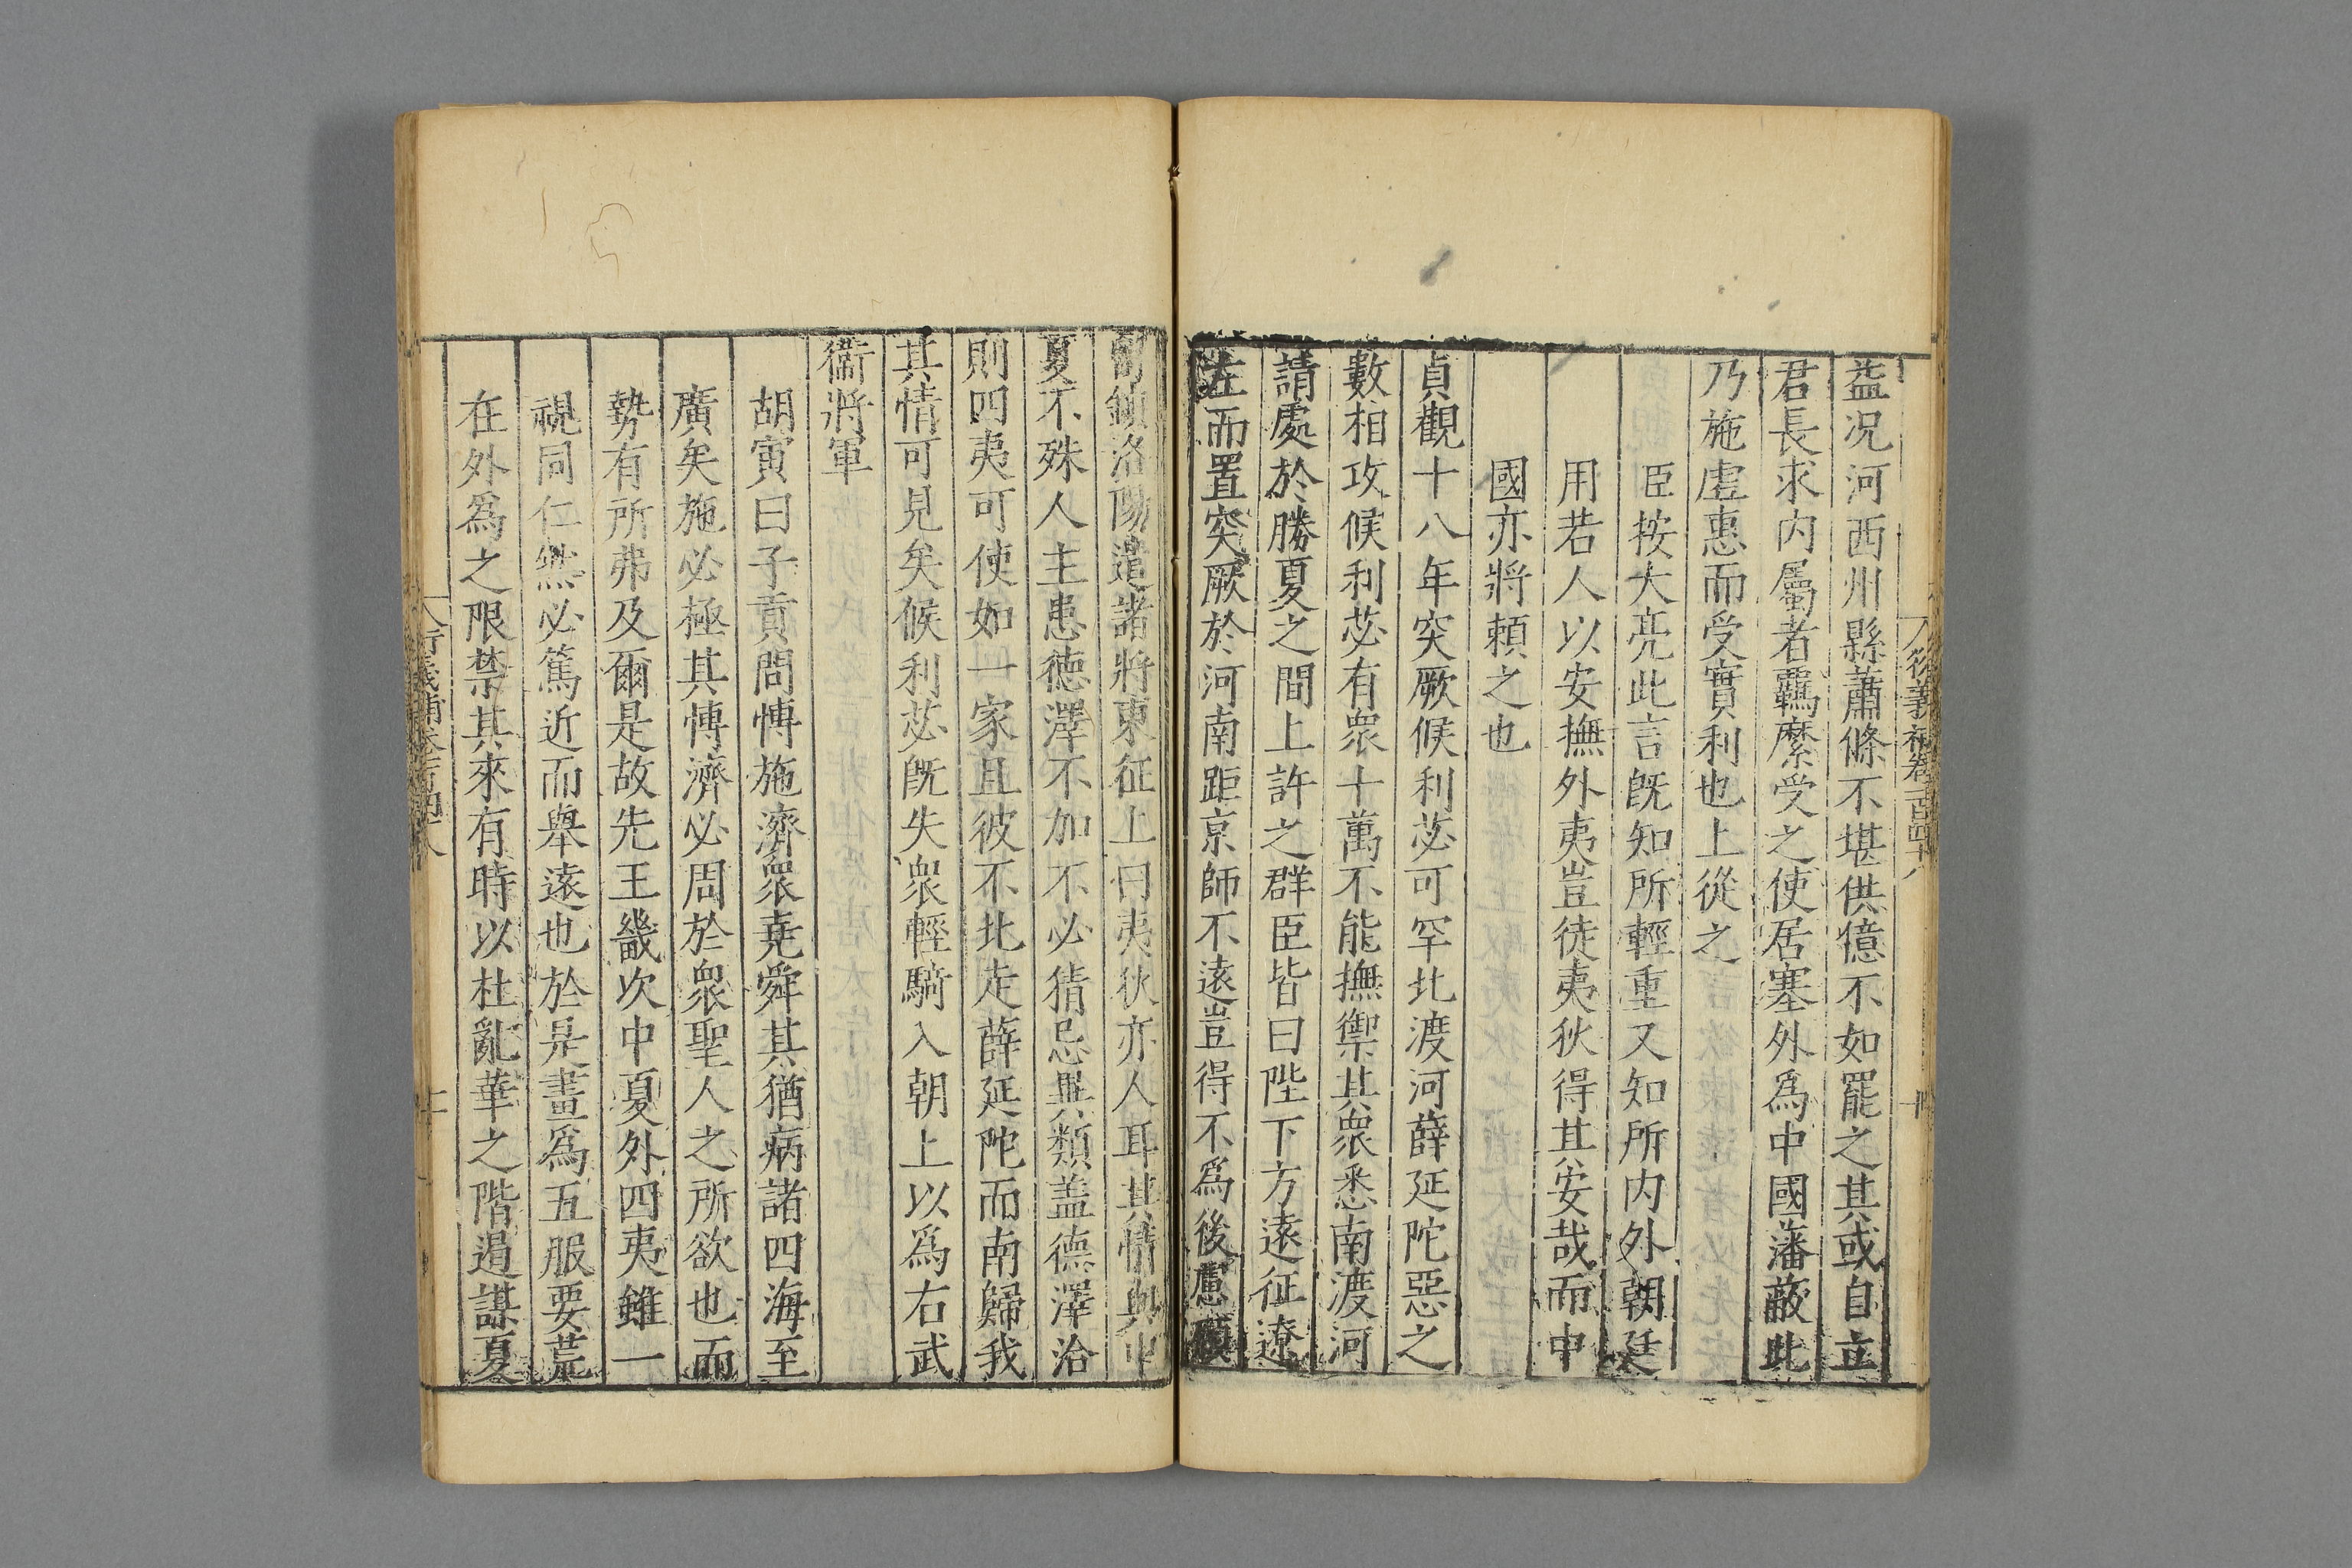 益况河西州縣蕭條不堪供億不如罷之其或自立
君長求内屬者羈縻受之使居塞外爲中國藩蔽此
乃施虚惠而受實利也上從之
臣按大亮此言旣知所輕重又知所内外朝廷
用若人以安撫外夷豈徒夷狄得其安哉而中
國亦將賴之也
貞觀十八年突厥候利苾可罕北渡河薛延陀惡之
數相攻候利苾有衆十萬不能撫禦其衆悉南渡河
請處於勝夏之間上許之群臣皆曰陛下方遠征遼
左而置突厥於河南距京師不遠豈得不爲後慮願
留鎮洛陽遣諸將東征上曰夷狄亦人耳其情與中
夏不殊人主患德澤不加不必猜忌異類盖德澤洽
則四夷可使如一家且彼不北走薛延陀而南歸我
其情可見矣候利苾旣失衆輕騎入朝上以爲右武
衞將軍
胡寅曰子貢問愽施濟衆堯舜其猶病諸四海至
廣矣施必極其愽濟必周於衆聖人之所欲也而
勢有所弗及爾是故先王畿次中夏外四夷雖一
視同仁然必篤近而舉遠也於是畫爲五服要荒
在外爲之限禁其來有時以杜亂華之階遏謀夏